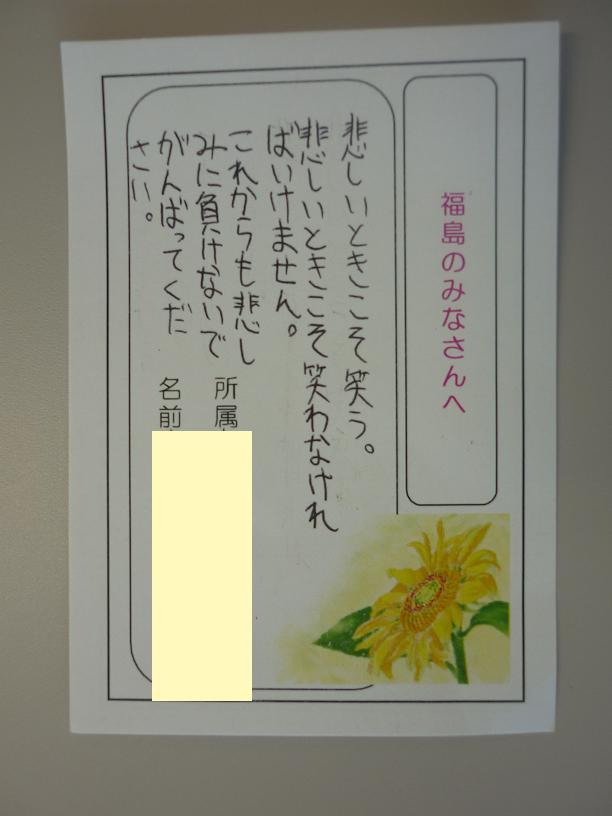 福島のみなさんへ
悲しいときこそ笑う。
悲しいときこそ笑わなけれ
ばいけません。
これからも悲し
みに負けないで
がんばってくだ
さい。
所属
名前